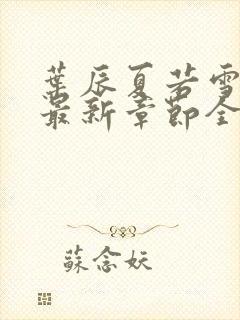 葉辰夏若雪
最新章節全
蘇念妖